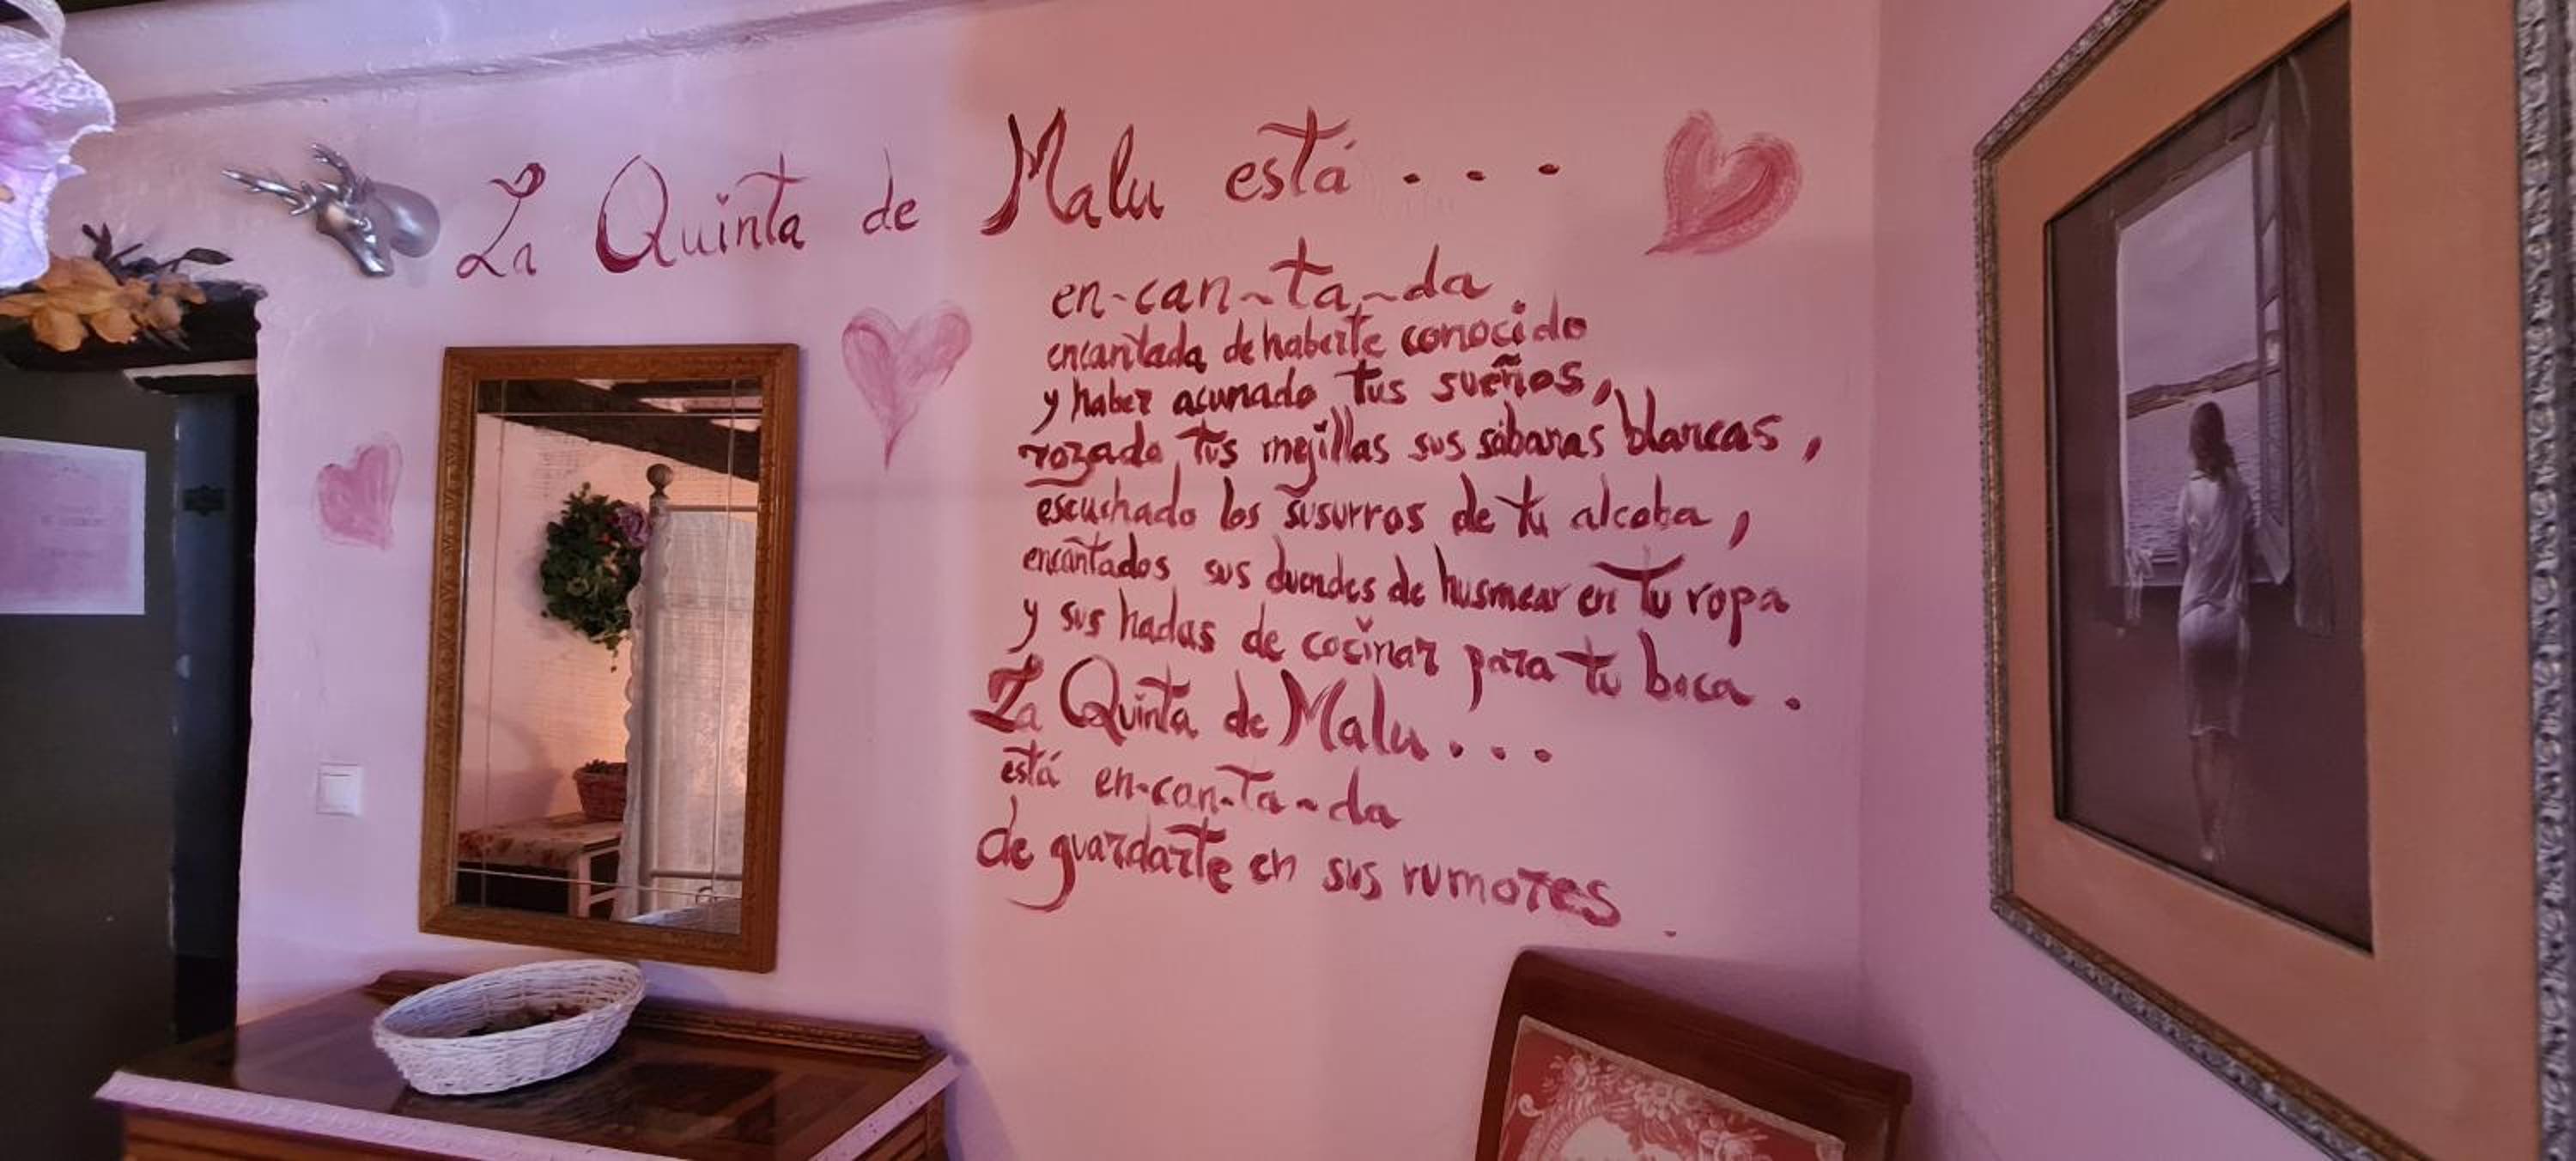 La Quinta de Malu está . . .
en-can-ta-da
encantada de haberte conocido
y haber acunado tus sueños,
rozado tus mejillas sus sábanas blancas,
escuchado los susurros de tu alcoba,
encantados sus duendes de husmear en tu ropa
y sus hadas de cocinar para tu boca.
La Quinta de Malu . . .
está en-can-ta-da
de guardarte en sus rumores.